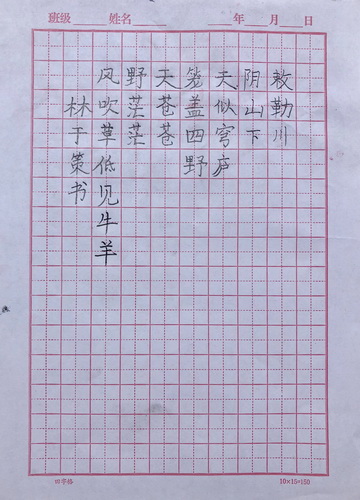 班级 姓名 年 月 日
敕勒川
阴山下
天似穹庐
笼盖四野
天苍苍
野茫茫
风吹草低见牛羊
林于策书
四字格 10×15=150